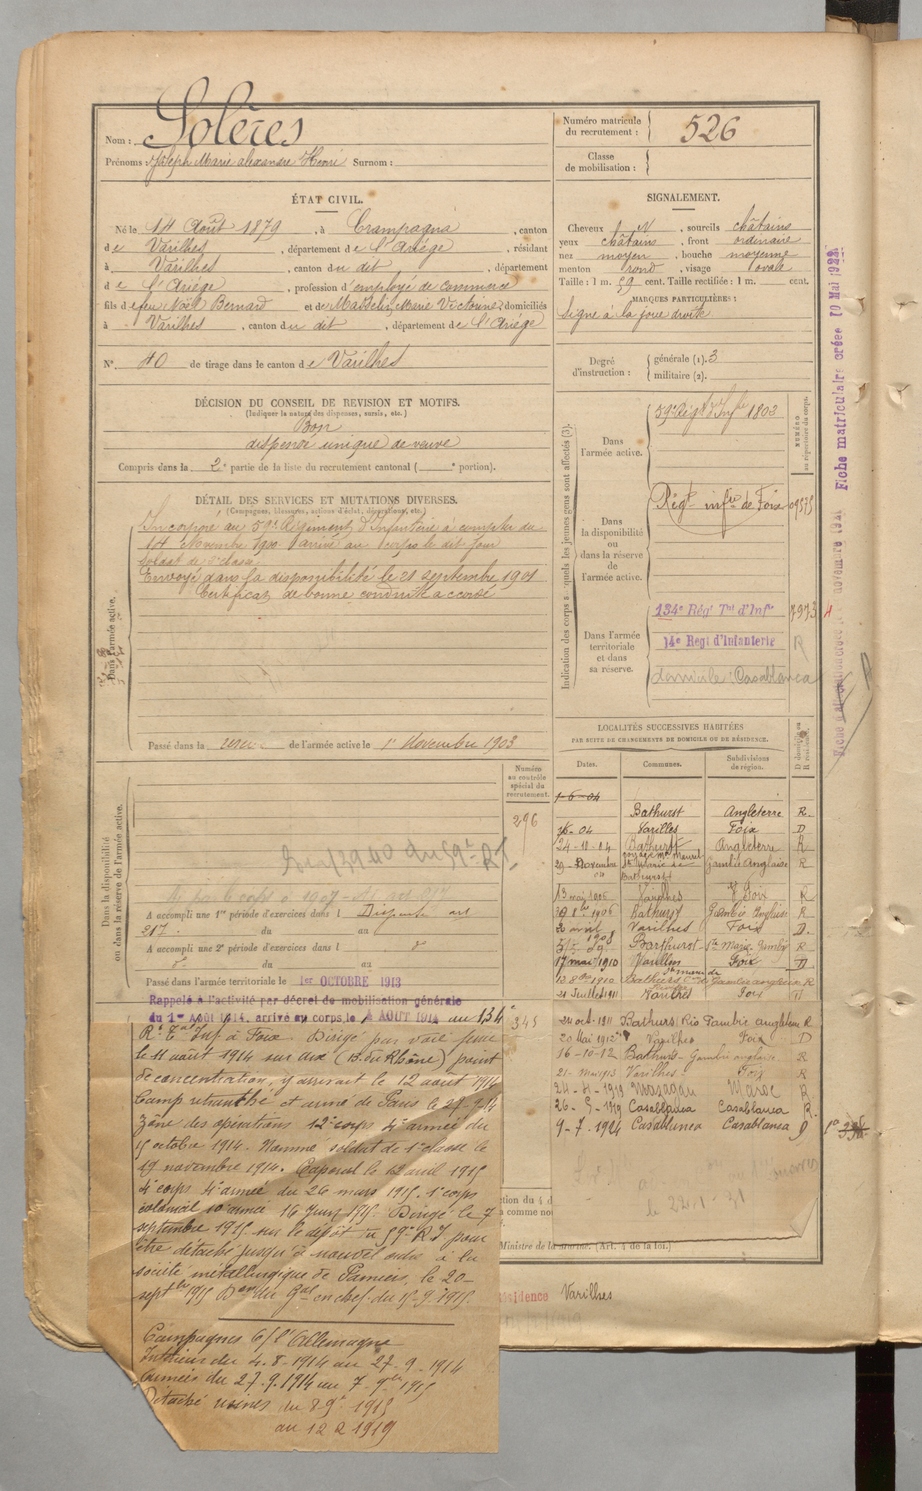 Nom : Solères
Prénoms : Joseph Marie alexandre Henri Surnom :
Numéro matricule du recrutement : 526
Classe de mobilisation :
ÉTAT CIVIL.
Né le 14 Août 1879, à Crampagna, canton
de Varilhes, département de l'Ariége, résidant
à Varilhes, canton du dit, département
de l'Ariége, profession d'employé de commerce
fils de feu Noël Bernard et de Marie Victorine, domiciliés
à Varilhes, canton du dit, département de l'Ariége
N° 40 de tirage dans le canton de Varilhes
SIGNALEMENT.
Cheveux N, sourcils châtains
yeux châtains, front ordinaire
nez moyen, bouche moyenne
menton rond, visage ovale
Taille : 1 m. 59 cent. Taille rectifiée : 1 m. cent.
MARQUES PARTICULIÈRES :
Signe à la joue droite
Degré d'instruction : générale (1). 3
militaire (2).
DÉCISION DU CONSEIL DE REVISION ET MOTIFS.
(Indiquer la nature des dispenses, sursis, etc.)
Bon
dispensé unique de veuve
Compris dans la 2e partie de la liste du recrutement cantonal ( e portion).
DÉTAIL DES SERVICES ET MUTATIONS DIVERSES.
(Campagnes, blessures, actions d'éclat, décorations, etc.)
Incorporé au 59e Régiment d'Infanterie à compter du
14 Novembre 1900 arrivé au corps le dit jour
soldat de 2e classe
Envoyé dans la disponibilité le 21 septembre 1901
Certificat de bonne conduite accordé
Dans l'armée active.
Passé dans la réserve de l'armée active le 1er Novembre 1903
Indication des corps auxquels les jeunes gens sont affectés (3).
NUMÉRO au répertoire du corps.
Dans l'armée active.
59e Régt d'Infie 1803
Dans la disponibilité ou dans la réserve de l'armée active.
Régt infie de Foix
Dans l'armée territoriale et dans sa réserve.
134e Régt Tal d'Infie 7973
14e Regt d'Infanterie R
domicile : Casablanca
Fiche matriculaire créee 10 Mai 1922
LOCALITÉS SUCCESSIVES HABITÉES
PAR SUITE DE CHANGEMENTS DE DOMICILE OU DE RÉSIDENCE.
Dates. Communes. Subdivisions de région. D domicile ou R résidence.
1-6-04
Bathurst Angleterre R
Varilles Foix D
24-11-04 Bathurst Angleterre R
29 Novembre Ste Marie de Bathurst Gambie Anglaise R
13 mai 1906 Varilhes Foix R
1906 Bathurst Gambie Anglaise R
2 avril 1908 Varilhes Foix D
Barthurst Ste Marie Gambie R
17 mai 1910 Varilles Foix D
13 8bre 1910 Bathurst Ste Marie de Gambie anglaise R
21 Juillet 1911 Varilhes Foix D
24 oct. 1911 Bathurst Rio Gambie anglaise R
20 Mai 1912 Varilhes Foix D
16-10-12 Bathurst Gambie anglaise R
21-Mai 1913 Varilhes Foix R
24-4-1919 Mazagan Maroc R
26-5-1919 Casablanca Casablanca R
9-7-1924 Casablanca Casablanca D
le 22-1-31
Numéro au contrôle spécial du recrutement.
296
345
Dans la disponibilité ou dans la réserve de l'armée active.
A accompli une 1re période d'exercices dans l Dispensé
du au
A accompli une 2e période d'exercices dans l do
do du au
Passé dans l'armée territoriale le 1er OCTOBRE 1913
Rappelé à l'activité par décret de mobilisation générale
du 1er Août 1914. arrivé au corps le 4 AOUT 1914 au 134e
Rt Tal Inf à Foix. Dirigé par voie ferrée
le 11 août 1914 sur Aix (B. du Rhône) point
de concentration, y arrivait le 12 août 1914
Camp retranché et armé de Paris le 27-9-14
Zône des opérations 12e corps 4e armée du
15 octobre 1914. Nommé soldat de 1e classe le
19 novembre 1914. Caporal le 12 avril 1915
4e corps 4e armée du 26 mars 1915. 1e corps
colonial 10e armée 16 Juin 1915. Dirigé le 7
septembre 1915 sur le dépôt du 59e RI pour
être détaché jusqu'à nouvel ordre à la
société métallurgique de Pamiers, le 20
septbre 1915 Don du Gal en chef du 15.9.1915.
Campagnes C/ l'Allemagne
Intérieur du 4.8.1914 au 27.9.1914
Armées du 27.9.1914 au 7 9bre 1915
Détaché usines du 8 9e 1915
au 12 2 1919
ction du 4 d
à comme no
Ministre de la (Art. 4 de la loi.)
Résidence Varilhes